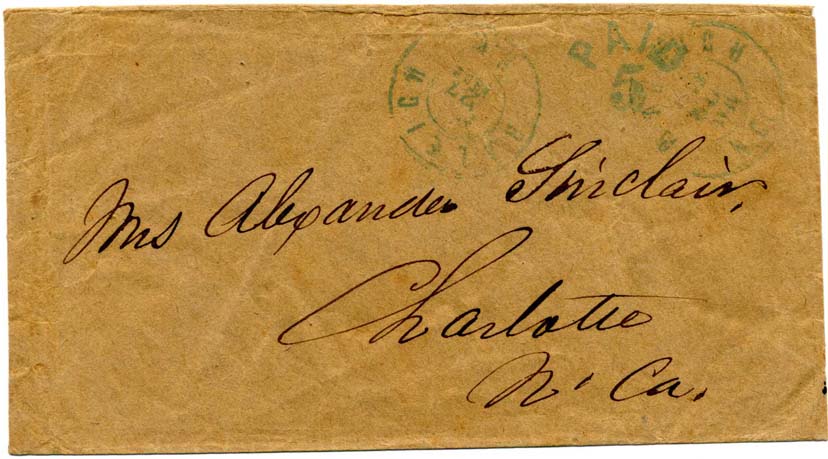 PAID
5
Mrs Alexander Sinclair,
Charlotte
N. Ca.